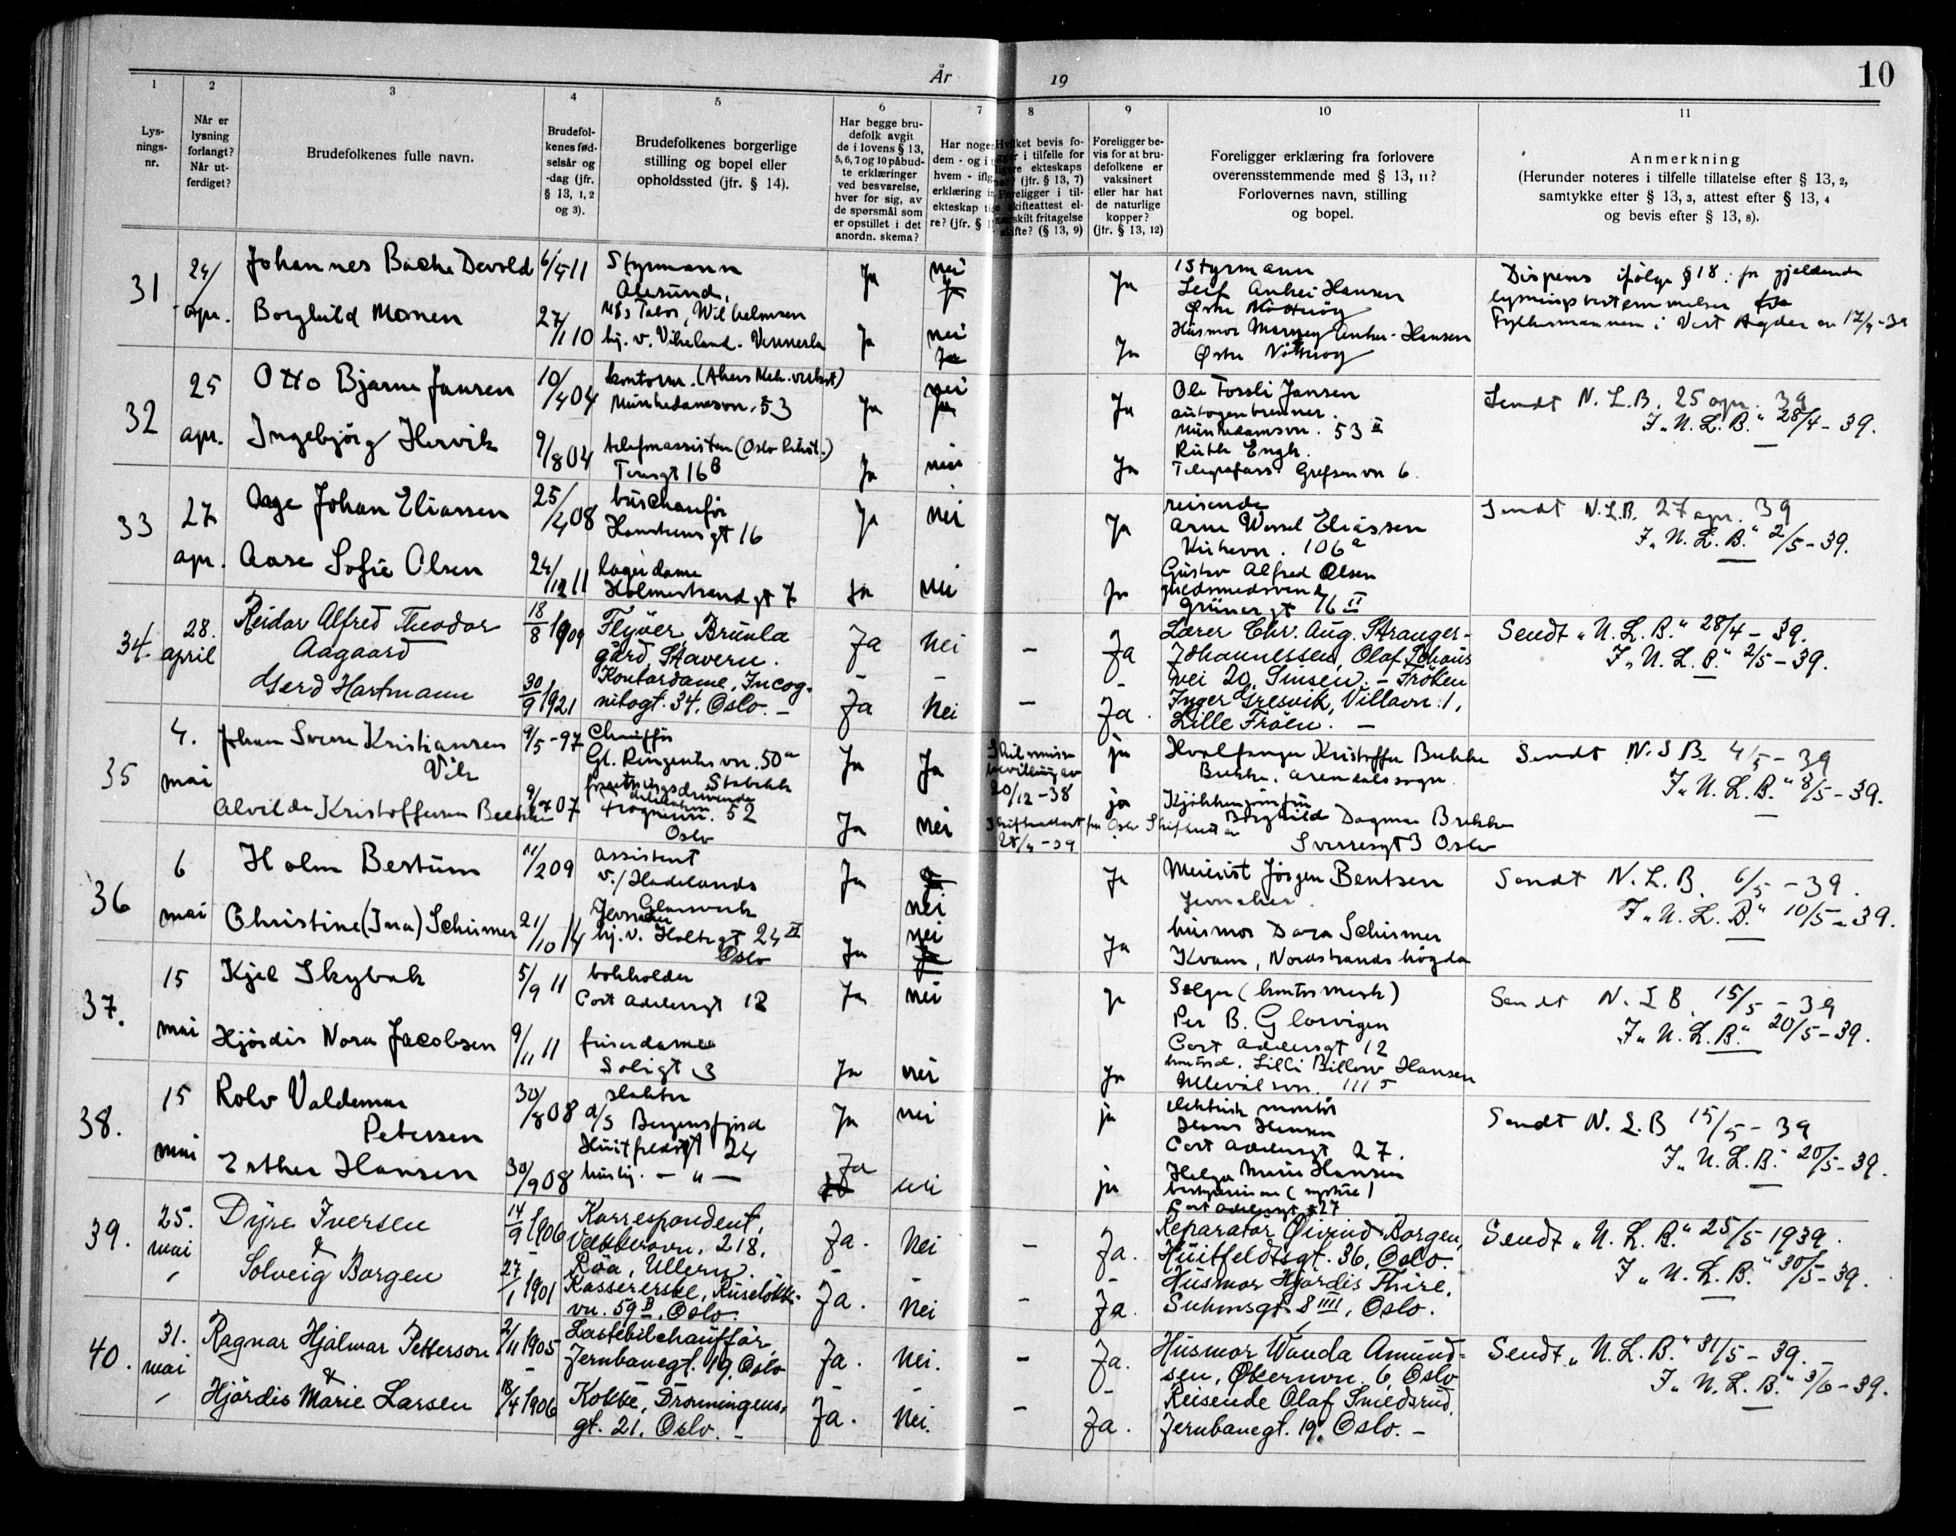 År 19
10
1 2 3 4 5 6 7 8 9 10 11
Lys-
nings-
nr.
Når er
lysning
forlangt?
Når ut-
ferdiget?
Brudefolkenes fulle navn.
Brudefol-
kenes fød-
selsår og
-dag (jfr.
§ 13, 1, 2
og 3).
Brudefolkenes borgerlige
stilling og bopel eller
opholdssted (jfr. § 14).
Har begge bru-
defolk avgit
de i lovens § 13,
5, 6, 7 og 10 påbud-
te erklæringer
ved besvarelse,
hver for sig, av
de spørsmål som
er opstillet i det
anordn. skema?
Har noger
dem - og i t
hvem - iflg
erklæring in
ekteskap tid
re? (jfr. § 1
Hvilket bevis fo-
i tilfelle for
ekteskaps
(jfr. § 13, 7)
Foreligger i til-
skifteattest el-
skilt fritagelse
skifte? (§ 13, 9)
Foreligger be-
vis for at bru-
defolkene er
vaksinert
eller har hat
de naturlige
kopper?
(jfr. § 13, 12)
Foreligger erklæring fra forlovere
overensstemmende med § 13, 11?
Forlovernes navn, stilling
og bopel.
Anmerkning
(Herunder noteres i tilfelle tillatelse efter § 13, 2,
samtykke efter § 13, 3, attest efter § 13, 4
og bevis efter § 13, 8).
31
24/
apr.
Johannes Bache Devold
Borghild Monen
6/4 11
27/1 10
Styrmann
Ålesund,
M/s Tabor, Wilhelmsen
hj. v. Vikeland. Vennesla
Ja nei
Ja nei
Ja
Ja
1 Styrmann
Leif Anker Hansen
Østre
Husmor Anker-Hansen
Østre
Dispens ifølge § 18 gjeldende
Fylkesmannen i Vest Agder 17/4-39
32
25
apr.
Otto Bjarne Jansen
Ingebjørg Hervik
10/4 04
9/8 04
kontorm. (Akers Mek. verksted)
Munkedamsvn. 53
telefonassistent (Oslo)
16 B
Ja nei
Ja nei
Ja
Ja
Ole Fossli Jansen
autogenbrenner.
Munkedamsvn. 53 II
Ruth Engh.
Telegrafass. Grefsenvn 6.
Sendt N. L. B. 25 apr. 39
I „N. L. B." 28/4-39.
33
27
apr.
Aage Johan Eliassen
Aase Sofie Olsen
25/4 08
24/12 11
buschaufør
gt 16
lagerdame
Holmestrandgt 7
Ja nei
Ja nei
Ja
Ja
reisende
Arne Wessel Eliassen
106 a
Gustav Alfred Olsen
gullsmedsvend
Grünergt 76 II
Sendt N. L. B. 27 apr. 39
I „N. L. B." 2/5-39.
34.
28.
april
Reidar Alfred Theodor
Aagaard
Gerd Hartmann
18/8 1909
30/9 1921
Flyver, Brunla
gård, Stavern.
Kontordame, Incog-
nitogt. 34. Oslo. –
Ja nei – Ja
Ja nei – Ja.
Lærer Chr. Aug. Stranger-
Johannessen, Olaf Schous
vei 20, Sinsen. – Frøken
Inger Gresvik, Villavn. 1,
Lille Frøen. –
Sendt „N. L. B." 28/4-39.
I „N. L. B." 2/5-39.
35
4.
mai
Johan Sverre Kristiansen
Vik
Alvilde Kristoffersen Bekke
9/5-97
07
Chauffør
Gl. Ringeriksvn. 50 a
Stabekk
Frognervn. 52
Oslo
Ja Ja
Ja nei
Skilsmisse
bevilling av
20/12-38
Skifteattest fra Oslo Skifterett av
25/4-39
ja
ja
Hvalfanger Kristoffer Bekke
Bekke. Arendalssogn.
Borghild Dagmar Bekke
Sverresgt 3 Oslo
Sendt N. L B. 4/5-39
I „N. L. B." 8/5-39.
36
6
mai
Holm Bestum
Christine (Ina) Schirmer
11/2 09
21/10 14
assistent
v./ Hadelands
Glassverk
Jevnaker
hj. v. Holtegt 24 II
Oslo
Ja nei
Ja nei
Ja
Ja
Meierist Jørgen Bentsen
Jevnaker.
husmor Dara Schirmer
Kvam, Nordstrandshøgda
Sendt N. L. B. 6/5-39.
I „N. L. B." 10/5-39.
37.
15
mai
Kjel Skybak
Hjördis Nora Jacobsen
5/9 11
9/11 11
bokholder
Cort Adelersgt 12
friserdame
Soligt 3
Ja nei
Ja nei
Ja
Ja
Selger (kontormask)
Per B. Glorvigen
Cort Adelersgt 12
kontord. Lilli Billow Hansen
Ullevålsvn. 111 5
Sendt N. L B. 15/5-39
I „N. L. B." 20/5-39.
38.
15
mai
Rolv Valdemar
Petersen
Esther Hansen
30/8 08
30/9 08
slakter
d/s Bergensfjord
Huitfeldtsgt 24
hushj. – „ –
Ja nei
Ja nei
ja
ja
elektrisk montør
Hans Hansen
Cort Adelersgt 27.
Helga Marie Hansen
bestyrerinne (
Cort Adelersgt 27
Sendt N. L. B 15/5-39
I „N. L. B." 20/5-39.
39.
25.
mai
Dyre Iversen
&
Solveig Borgen
14/9 1906
27/1 1901
Korrespondent,
Vækkerøvn. 218,
Røa, Ullern.
Kassererske, Ruseløkk-
vn. 59 B, Oslo.
Ja. Nei – Ja.
Ja. Nei – Ja.
Reparatør Øivind Borgen,
Huitfeldtsgt. 36, Oslo.
Husmor Hjørdis Thire,
Suhmsgt. 8 IIII, Oslo.
Sendt „N. L. B." 25/5 1939.
I „N. L. B." 30/5-39.
40.
31.
mai
Ragnar Hjalmar Petterson
&
Hjördis Marie Larsen
2/11 1905
18/4 1906
Lastebilchauffør,
Jernbanegt. 19, Oslo
Kokke, Dronningens-
gt. 21. Oslo. –
Ja. Nei. – Ja.
Ja. Nei. – Ja.
Husmor Wanda Amund-
sen, Økernvn. 6, Oslo
Reisende Olaf Smedsrud,
Jernbanegt. 19. Oslo. –
Sendt „N. L. B." 31/5-39.
I „N. L. B." 3/6-39.